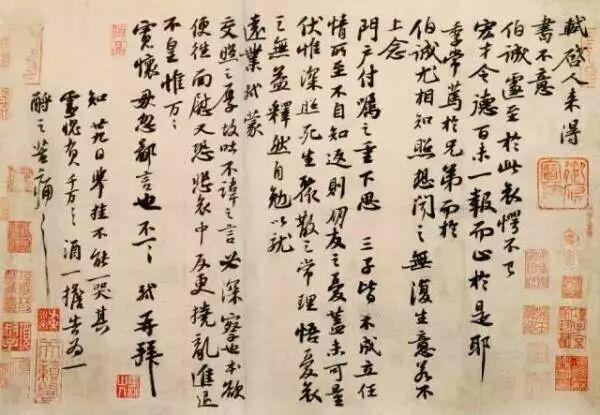 軾啓人来得
書不意
伯誠遽至於此哀愕不已
宏才令德百未一報而止於是耶
季常篤於兄弟而於
伯誠尤相知照想聞之無復生意若不
上念
門户付囑之重下思三子皆不成立任
情所至不自知返則朋友之憂蓋未可量
伏惟深照死生聚散之常理悟憂哀
之無益釋然自勉以就
遠業軾蒙
交照之厚故吐不諱之言必深察也本欲
便往面慰又恐悲哀中反更撓亂進退
不皇惟万々
寬懷毋忽鄙言也不一々軾再拜
知廿九日舉掛不能一哭其
靈愧負千万々酒一擔告為一
酹之苦痛々々